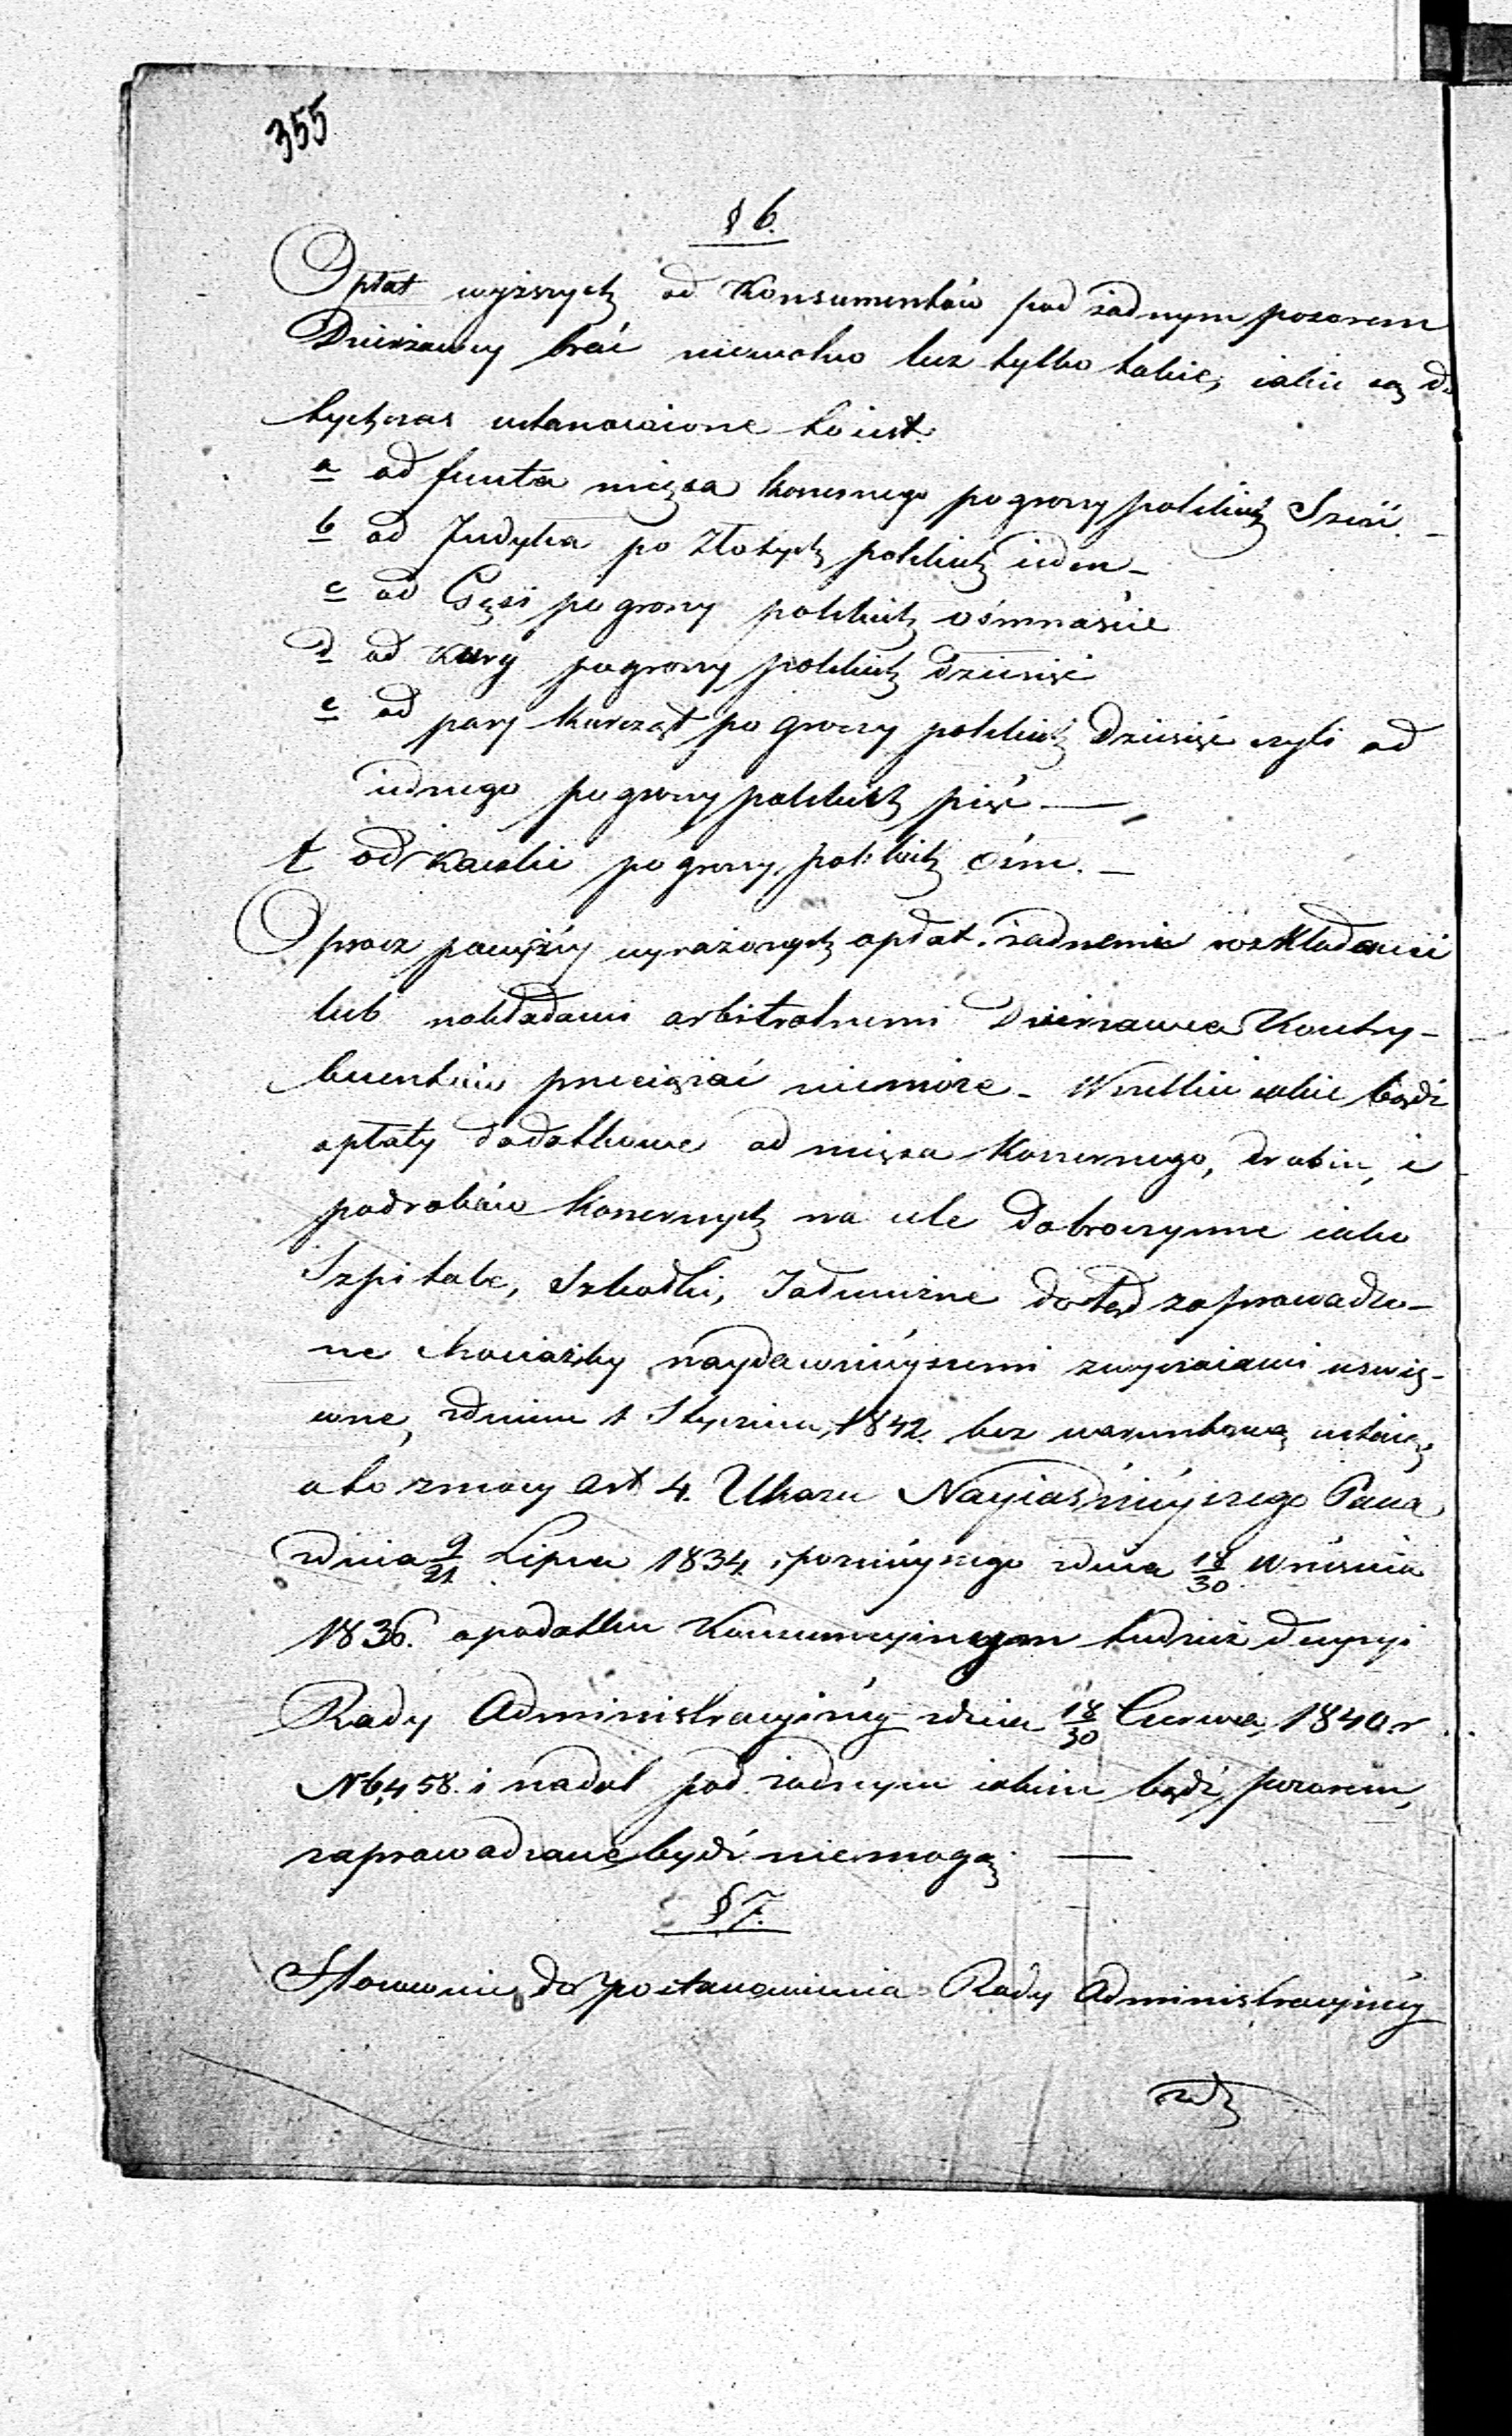 355
§ 6.
Opłat wyższych od Konsumentów pod żadnym pozorem
Dzierżawcy brać niewolno lecz tylko takie, iakie są do
tychczas ustanowione to iest:
a od funta mięsa koszernego po groszy polskich Sześć. –
b od Indyka po Złotych polskich ieden –
c od Gęsi po groszy polskich ośmnaście
d od Kury po groszy polskich dziesięć
e od pary kurcząt po groszy polskich Dziesięć czyli od
iednego po groszy polskich pięć —
f od Kaczki po groszy polskich ośm. –
Oprócz powyżéy wyrażonych opłat, żadnemi rozkładami
lub nakładami arbitralnemi Dzierżawca Kontry-
buentów przeciążać niemoże – Wszelkie iakie bądź
opłaty dodatkowe od mięsa Koszernego, drobiu, i
podrobów koszernych na cele dobroczynne iako
Szpitale, Szkółki, Jałmużne dotąd zaprowadzo-
ne chociażby naydawnieyszemi zwyczaiami uświę-
cone, zdniem 1 Stycznia, 1842. bezwarunkowo ustaią
a to zmocy art 4. Ukazu Nayiaśnieyszego Pana
zdnia 9/21 Lipca 1834 i poźnieyszego zdnia 18/30 Września
1836. o podatku Konsumcyinym tudzież decyzyi
Rady Administracyinéy zdnia 18/30 Czerwca, 1840 r
N 6,458. i nadal pod żadnym iakim bądź pozorem,
zaprowadzane bydź niemogą. —
§ 7.
Stosownie do postanowienia Rady Administracyinéy
zdn